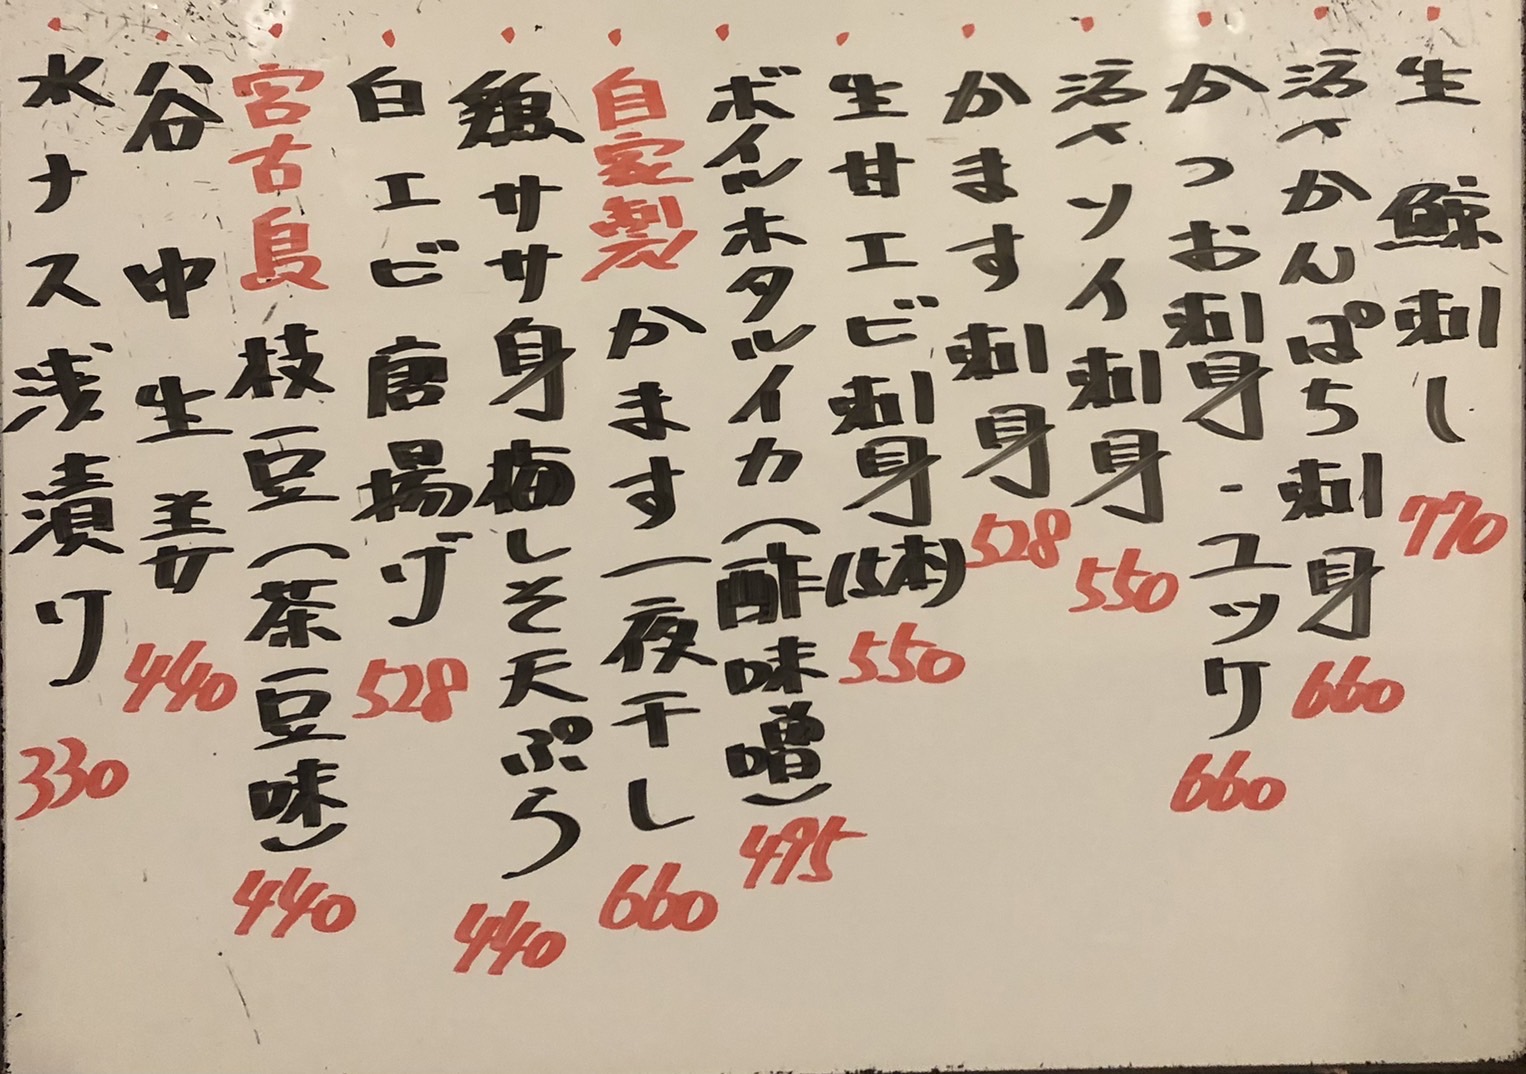 生鯨刺し 770
活〆かんぱち刺身 660
かつお刺身・ユッケ 660
活〆ソイ刺身 550
かます刺身 528
生甘エビ刺身(15本) 550
ボイルホタルイカ(酢味噌) 495
自家製かます一夜干し 660
鶏ササ身梅しそ天ぷら 440
白エビ唐揚げ 528
宮古島枝豆(茶豆味) 440
谷中生姜 440
水ナス浅漬け 330